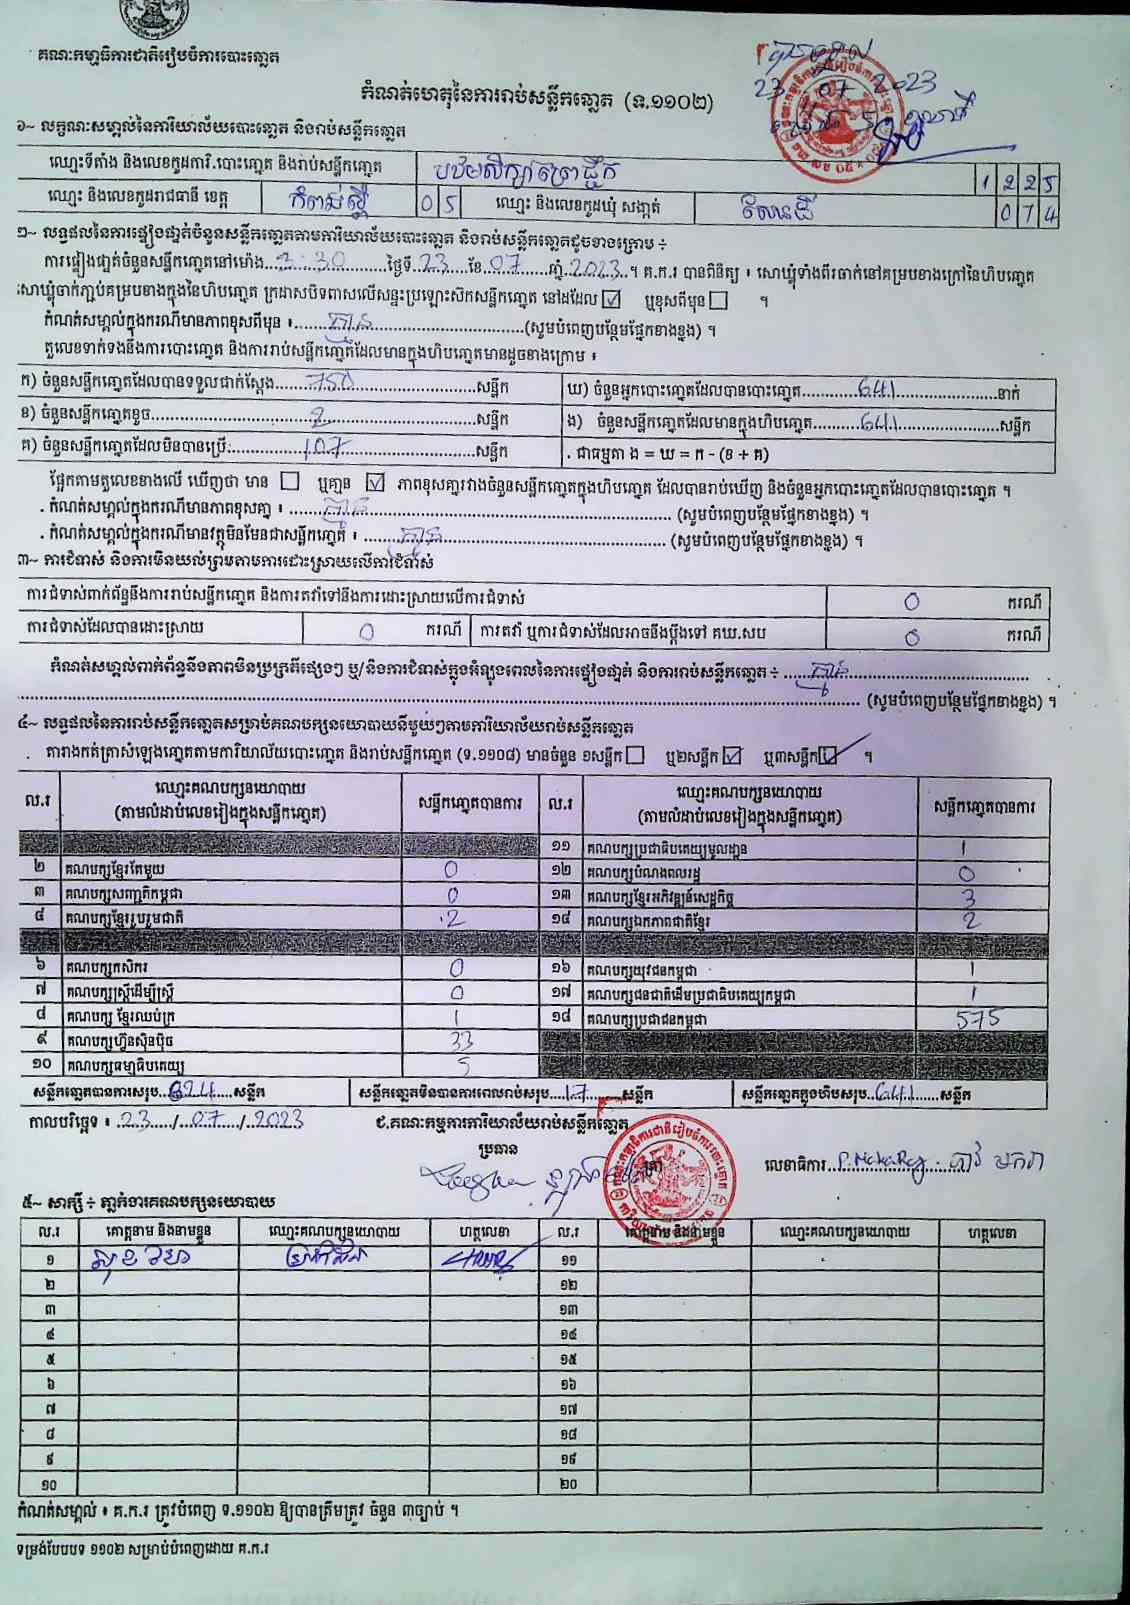 គណៈកម្មាធិការជាតិរៀបចំការបោះឆ្នោត
23 07 2023
កំណត់ហេតុនៃការរាប់សន្លឹកឆ្នោត (ទ.១១០២)
១~ លក្ខណៈសម្គាល់នៃការិយាល័យបោះឆ្នោត និងរាប់សន្លឹកឆ្នោត
ឈ្មោះទីតាំង និងលេខកូដការិ.បោះឆ្នោត និងរាប់សន្លឹកឆ្នោត 1 2 2 5
ឈ្មោះ និងលេខកូដរាជធានី ខេត្ត កំពង់ស្ពឺ 0 5 ឈ្មោះ និងលេខកូដឃុំ សង្កាត់ សែនដី 0 7 4
២~ លទ្ធផលនៃការផ្ទៀងផ្ទាត់ចំនួនសន្លឹកឆ្នោតតាមការិយាល័យបោះឆ្នោត និងរាប់សន្លឹកឆ្នោតដូចខាងក្រោម ÷
ការផ្ទៀងផ្ទាត់ចំនួនសន្លឹកឆ្នោតនៅម៉ោង...3:30...ថ្ងៃទី.23...ខែ.07...ឆ្នាំ.2023..។ គ.ក.រ បានពិនិត្យ ៖ សោឃ្លុំទាំងពីរចាក់នៅគម្របខាងក្រៅនៃហិបឆ្នោត
សោឃ្លុំចាក់ភ្ជាប់គម្របខាងក្នុងនៃហិបឆ្នោត ក្រដាសបិទពាសលើសន្ទះប្រឡោះសិកសន្លឹកឆ្នោត នៅដដែល ☑ ឬខុសពីមុន ☐ ។
កំណត់សម្គាល់ក្នុងករណីមានភាពខុសពីមុន ៖.....គ្មាន.....(សូមបំពេញបន្ថែមផ្នែកខាងខ្នង) ។
តួលេខទាក់ទងនឹងការបោះឆ្នោត និងការរាប់សន្លឹកឆ្នោតដែលមានក្នុងហិបឆ្នោតមានដូចខាងក្រោម ៖
ក) ចំនួនសន្លឹកឆ្នោតដែលបានទទួលជាក់ស្តែង.....750.....សន្លឹក ឃ) ចំនួនអ្នកបោះឆ្នោតដែលបានបោះឆ្នោត.....641.....នាក់
ខ) ចំនួនសន្លឹកឆ្នោតខូច.....2.....សន្លឹក ង) ចំនួនសន្លឹកឆ្នោតដែលមានក្នុងហិបឆ្នោត.....641.....សន្លឹក
គ) ចំនួនសន្លឹកឆ្នោតដែលមិនបានប្រើ:.....107.....សន្លឹក . ជាធម្មតា ង = ឃ = ក - (ខ + គ)
ផ្អែកតាមតួលេខខាងលើ ឃើញថា មាន ☐ ឬគ្មាន ☑ ភាពខុសគ្នារវាងចំនួនសន្លឹកឆ្នោតក្នុងហិបឆ្នោត ដែលបានរាប់ឃើញ និងចំនួនអ្នកបោះឆ្នោតដែលបានបោះឆ្នោត ។
. កំណត់សម្គាល់ក្នុងករណីមានភាពខុសគ្នា ៖ .....គ្មាន..... (សូមបំពេញបន្ថែមផ្នែកខាងខ្នង) ។
. កំណត់សម្គាល់ក្នុងករណីមានវត្ថុមិនមែនជាសន្លឹកឆ្នោត ៖ .....គ្មាន..... (សូមបំពេញបន្ថែមផ្នែកខាងខ្នង) ។
៣~ ការជំទាស់ និងការមិនយល់ព្រមតាមការដោះស្រាយលើការជំទាស់
ការជំទាស់ពាក់ព័ន្ធនឹងការរាប់សន្លឹកឆ្នោត និងការតវ៉ាទៅនឹងការដោះស្រាយលើការជំទាស់ 0 ករណី
ការជំទាស់ដែលបានដោះស្រាយ 0 ករណី ការតវ៉ា ឬការជំទាស់ដែលអាចនឹងប្តឹងទៅ គឃ.សប 0 ករណី
កំណត់សម្គាល់ពាក់ព័ន្ធនឹងភាពមិនប្រក្រតីផ្សេងៗ ឬ/និងការជំទាស់ក្នុងអំឡុងពេលនៃការផ្ទៀងផ្ទាត់ និងការរាប់សន្លឹកឆ្នោត ÷ .....គ្មាន.....
..... (សូមបំពេញបន្ថែមផ្នែកខាងខ្នង) ។
៤~ លទ្ធផលនៃការរាប់សន្លឹកឆ្នោតសម្រាប់គណបក្សនយោបាយនីមួយៗតាមការិយាល័យរាប់សន្លឹកឆ្នោត
. តារាងកត់ត្រាសំឡេងឆ្នោតតាមការិយាល័យបោះឆ្នោត និងរាប់សន្លឹកឆ្នោត (ទ.១១០៨) មានចំនួន ១សន្លឹក ☐ ឬ២សន្លឹក ☑ ឬ៣សន្លឹក ☑ ។
ល.រ ឈ្មោះគណបក្សនយោបាយ (តាមលំដាប់លេខរៀងក្នុងសន្លឹកឆ្នោត) សន្លឹកឆ្នោតបានការ ល.រ ឈ្មោះគណបក្សនយោបាយ (តាមលំដាប់លេខរៀងក្នុងសន្លឹកឆ្នោត) សន្លឹកឆ្នោតបានការ
១១ គណបក្សប្រជាធិបតេយ្យមូលដ្ឋាន 1
២ គណបក្សខ្មែរតែមួយ 0 ១២ គណបក្សបំណងពលរដ្ឋ 0
៣ គណបក្សសញ្ជាតិកម្ពុជា 0 ១៣ គណបក្សខ្មែរអភិវឌ្ឍន៍សេដ្ឋកិច្ច 3
៤ គណបក្សខ្មែររួបរួមជាតិ 2 ១៤ គណបក្សឯកភាពជាតិខ្មែរ 2
៦ គណបក្សកសិករ 0 ១៦ គណបក្សយុវជនកម្ពុជា 1
៧ គណបក្សស្ត្រីដើម្បីស្ត្រី 0 ១៧ គណបក្សជនជាតិដើមប្រជាធិបតេយ្យកម្ពុជា 1
៨ គណបក្ស ខ្មែរឈប់ក្រ 1 ១៨ គណបក្សប្រជាជនកម្ពុជា 575
៩ គណបក្សហ៊្វុនស៊ិនប៉ិច 33
១០ គណបក្សធម្មាធិបតេយ្យ 5
សន្លឹកឆ្នោតបានការសរុប..624....សន្លឹក សន្លឹកឆ្នោតមិនបានការពេលរាប់សរុប...17....សន្លឹក សន្លឹកឆ្នោតក្នុងហិបសរុប..641.....សន្លឹក
កាលបរិច្ឆេទ ÷ .23...../..07.../..2023 ជ.គណៈកម្មការការិយាល័យរាប់សន្លឹកឆ្នោត
ប្រធាន លេខាធិការ
៥~ សាក្សី ÷ ភ្នាក់ងារគណបក្សនយោបាយ
ល.រ គោត្តនាម និងនាមខ្លួន ឈ្មោះគណបក្សនយោបាយ ហត្ថលេខា ល.រ គោត្តនាម និងនាមខ្លួន ឈ្មោះគណបក្សនយោបាយ ហត្ថលេខា
១ ១១
២ ១២
៣ ១៣
៤ ១៤
៥ ១៥
៦ ១៦
៧ ១៧
៨ ១៨
៩ ១៩
១០ ២០
កំណត់សម្គាល់ ៖ គ.ក.រ ត្រូវបំពេញ ទ.១១០២ ឱ្យបានត្រឹមត្រូវ ចំនួន ៣ច្បាប់ ។
ទម្រង់បែបបទ ១១០២ សម្រាប់បំពេញដោយ គ.ក.រ